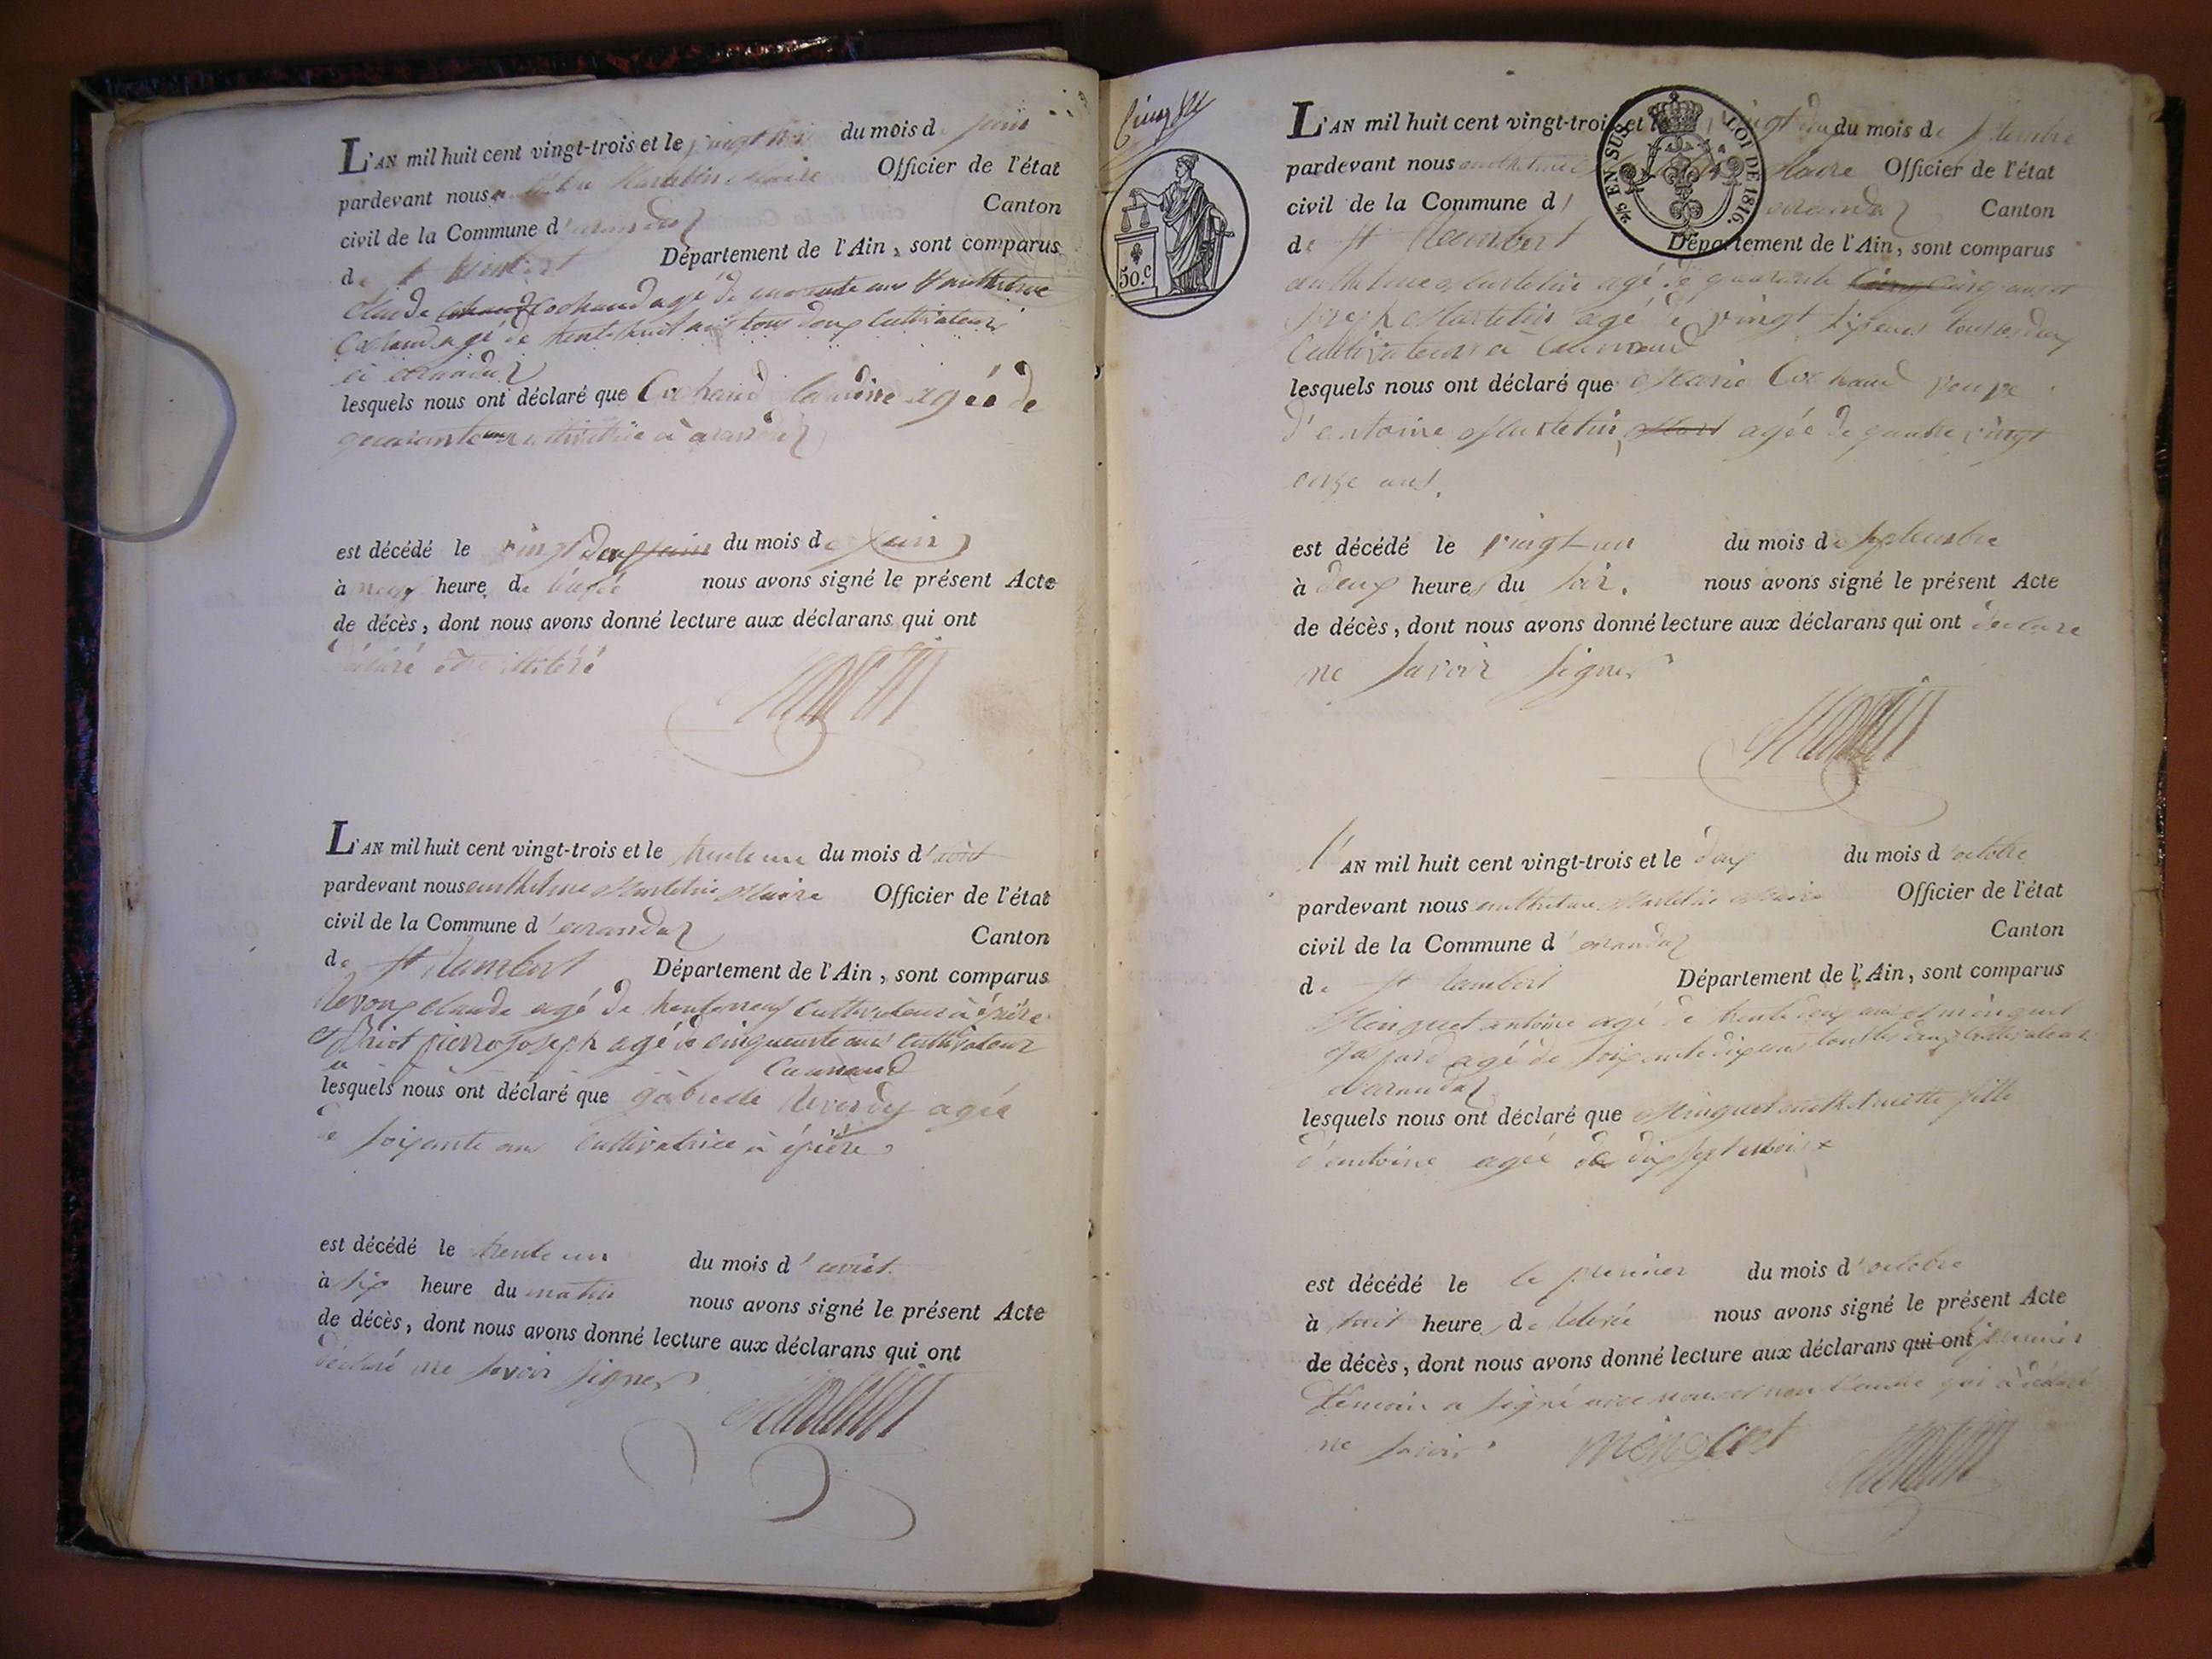 L'AN mil huit cent vingt-trois et le vingt trois du mois de juin
pardevant nous Martelin Maire Officier de l'état
civil de la Commune d'arandas Canton
de St Rambert Département de l'Ain, sont comparus
Claude Cochaud agé de quarante ans & anthelme
Cochaud agé de trente huit ans tous deux Cultivateurs
à arandas
lesquels nous ont déclaré que Cochaud Claudine agée de
quarante ans cultivatrice à arandas
est décédé le vingt deux juin du mois de Juin
à neuf heure du nous avons signé le présent Acte
de décès, dont nous avons donné lecture aux déclarans qui ont
déclaré être illitéré
L'AN mil huit cent vingt-trois et le trente un du mois d'août
pardevant nous anthelme Martelin Maire Officier de l'état
civil de la Commune d'arandas Canton
de St Rambert Département de l'Ain, sont comparus
Claude agé de trente neuf Cultivateur à
et pierre joseph agé de cinquante ans Cultivateur
à
lesquels nous ont déclaré que gabrielle agée
de soixante ans Cultivatrice à
est décédé le trente un du mois d'août
à six heure du matin nous avons signé le présent Acte
de décès, dont nous avons donné lecture aux déclarans qui ont
déclaré ne savoir signer
Cinq
50.c
2/5 EN SUS. LOI DE 1816.
L'AN mil huit cent vingt-trois et le vingt deux du mois de septembre
pardevant nous anthelme Maire Officier de l'état
civil de la Commune d'arandas Canton
de St Rambert Département de l'Ain, sont comparus
anthelme Martelin agé de quarante cinq cinq ans et
joseph Martelin agé de vingt six ans tous les deux
Cultivateurs à
lesquels nous ont déclaré que Marie Cochaud veuve
d'antoine Martelin, agée de quatre vingt
onze ans.
est décédé le vingt-un du mois de septembre
à deux heures du soir. nous avons signé le présent Acte
de décès, dont nous avons donné lecture aux déclarans qui ont déclaré
ne savoir signer
l'AN mil huit cent vingt-trois et le deux du mois d'octobre
pardevant nous anthelme Martelin Maire Officier de l'état
civil de la Commune d'arandas Canton
de St Rambert Département de l'Ain, sont comparus
Minguet antoine agé de trente deux ans et minguet
gaspard agé de soixante dix ans tous les deux Cultivateurs
à arandas
lesquels nous ont déclaré que Minguet anthelmette fille
d'antoine agée de dix sept mois
est décédé le le premier du mois d'octobre
à huit heures de nous avons signé le présent Acte
de décès, dont nous avons donné lecture aux déclarans qui ont le premier
témoin a signé avec nous et non l'autre qui a déclaré
ne savoir minguet